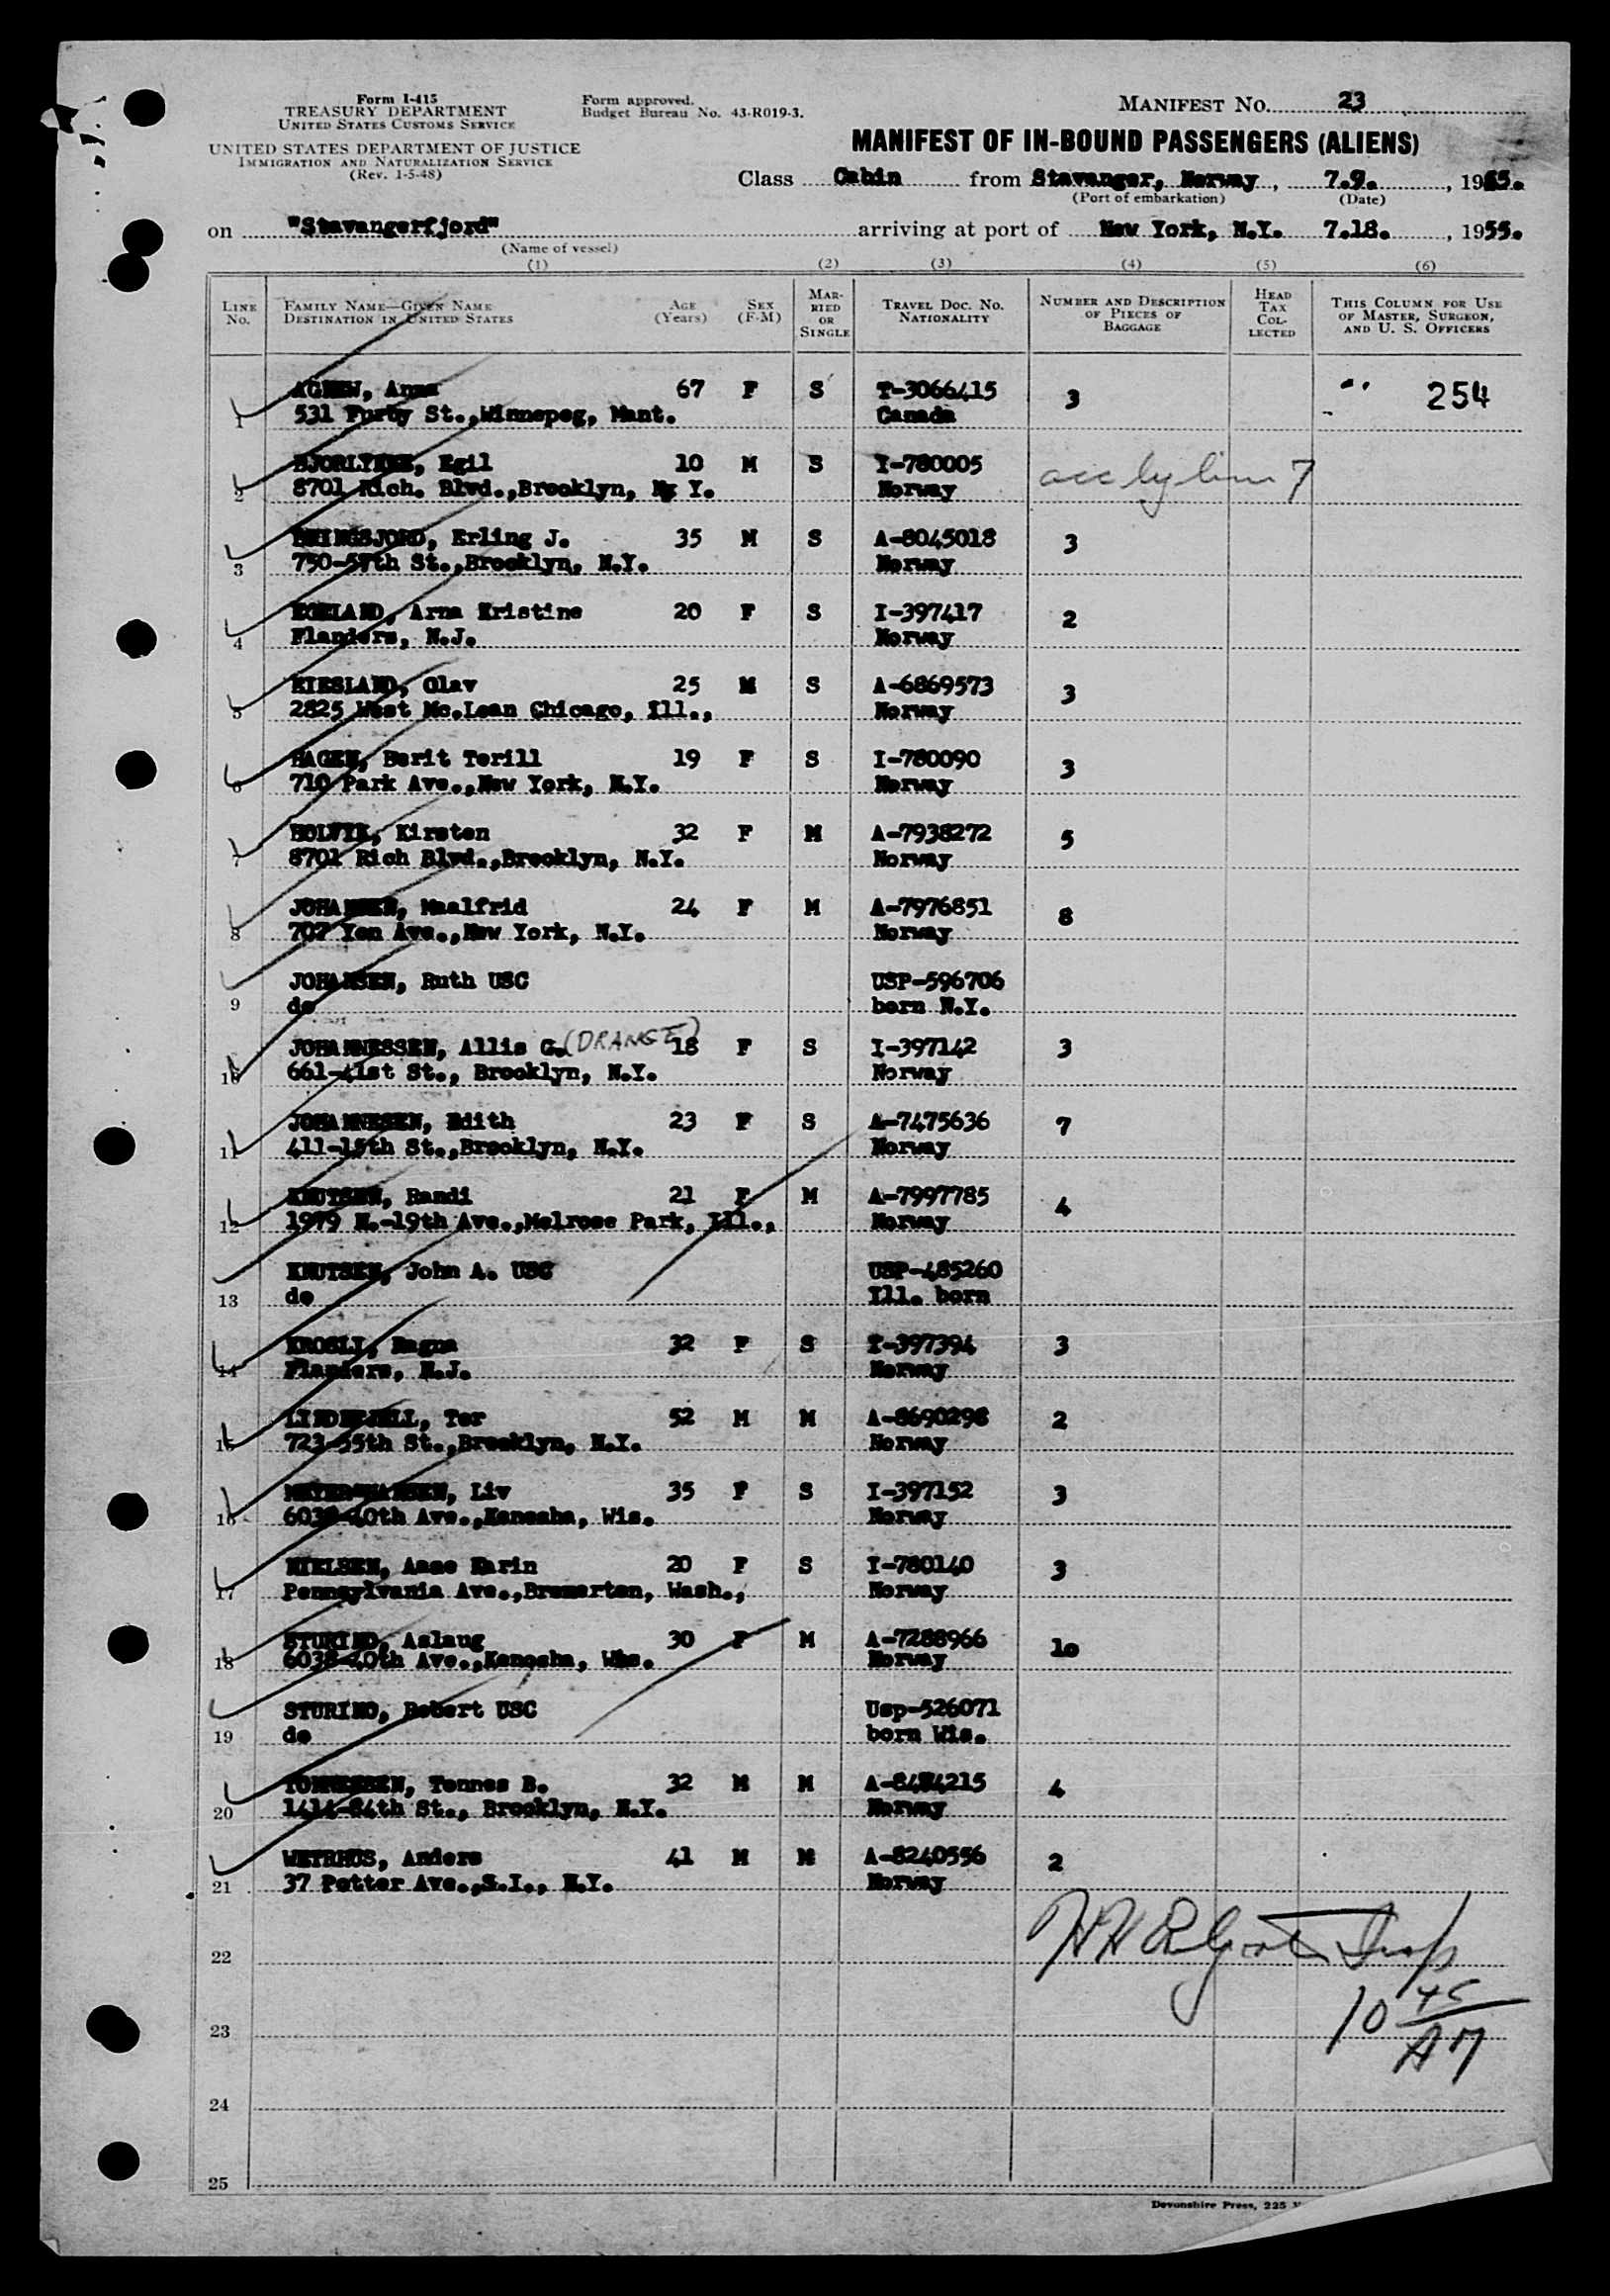 Form I-415
TREASURY DEPARTMENT
UNITED STATES CUSTOMS SERVICE
UNITED STATES DEPARTMENT OF JUSTICE
IMMIGRATION AND NATURALIZATION SERVICE
(Rev. 1-5-48)
Form approved.
Budget Bureau No. 43-R019-3.
MANIFEST NO. 23
MANIFEST OF IN-BOUND PASSENGERS (ALIENS)
Class Cabin from Stavanger, Norway, 7.9., 1955.
(Port of embarkation) (Date)
on "Stavangerfjord" arriving at port of New York, N.Y. 7.18., 1955.
(Name of vessel)
(1) (2) (3) (4) (5) (6)
LINE No. FAMILY NAME—GIVEN NAME DESTINATION IN UNITED STATES AGE (Years) SEX (F-M) MARRIED OR SINGLE TRAVEL DOC. NO. NATIONALITY NUMBER AND DESCRIPTION OF PIECES OF BAGGAGE HEAD TAX COLLECTED THIS COLUMN FOR USE OF MASTER, SURGEON, AND U. S. OFFICERS
AGNEW, Anna 67 F S T-3066415 3 254
1 531 Furby St.,Winnepeg, Mant. Canada
Egil 10 M S I-780005 acc by line 7
2 8701 Rich. Blvd.,Brooklyn, N. Y. Norway
BRINGSJORD, Erling J. 35 M S A-8045018 3
3 750-57th St.,Brooklyn, N.Y. Norway
EGELAND, Arna Kristine 20 F S I-397417 2
4 Flanders, N.J. Norway
EIESLAND, Olav 25 M S A-6869573 3
5 2825 West Mc.Lean Chicago, Ill., Norway
HAGEN, Berit Torill 19 F S I-780090 3
6 710 Park Ave.,New York, N.Y. Norway
Kirsten 32 F M A-7938272 5
7 8701 Rich Blvd.,Brooklyn, N.Y. Norway
JOHANSEN, Maalfrid 24 F M A-7976851 8
8 702 Yon Ave.,New York, N.Y. Norway
JOHANSEN, Ruth USC USP-596706
9 do born N.Y.
JOHANNESSEN, Allis G. (DRANGE) 18 F S I-397142 3
10 661-41st St., Brooklyn, N.Y. Norway
JOHANNESEN, Edith 23 F S A-7475636 7
11 411-15th St.,Brooklyn, N.Y. Norway
KNUTSEN, Randi 21 F M A-7997785 4
12 1979 N.-19th Ave.,Melrose Park, Ill., Norway
KNUTSEN, John A. USC USP-485260
13 do Ill. born
KROGLI, Ragna 32 F S I-397394 3
14 Flanders, N.J. Norway
LINDEFJELL, Tor 52 M M A-8690298 2
15 723-55th St.,Brooklyn, N.Y. Norway
MEYER-HANSEN, Liv 35 F S I-397152 3
16 6038-40th Ave.,Kenosha, Wis. Norway
NIELSEN, Aase Karin 20 F S I-780140 3
17 Pennsylvania Ave.,Bremerton, Wash., Norway
STURINO, Aslaug 30 F M A-7288966 10
18 6038-40th Ave.,Kenosha, Wis. Norway
STURINO, Robert USC Usp-526071
19 do born Wis.
TONNESSEN, Tonnes B. 32 M M 4
20 1414-84th St., Brooklyn, N.Y. Norway
WETRHUS, Anders 41 M M A-8240556 2
21 37 Potter Ave.,S.I., N.Y. Norway
22
Insp
10 45 AM
23
24
25
Devonshire Press, 225